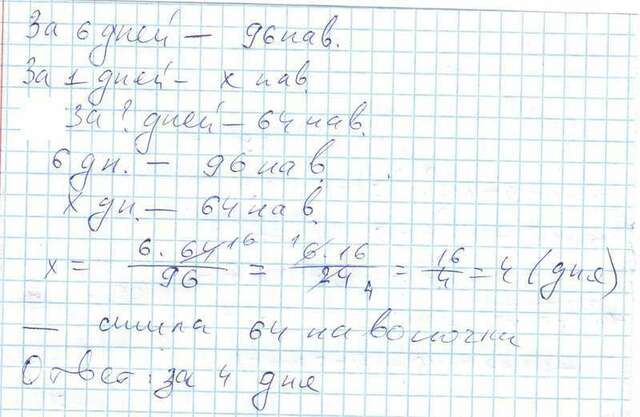 За 6 дней — 96 нав.
За 1 дней — х нав.
За ? дней — 64 нав.
6 дн. — 96 нав.
х дн. — 64 нав.
х = 6 · 64 16 / 96 = 1 6 · 16 / 24 4 = 16/4 = 4 (дня)
— сшила 64 наволочки
Ответ: за 4 дня